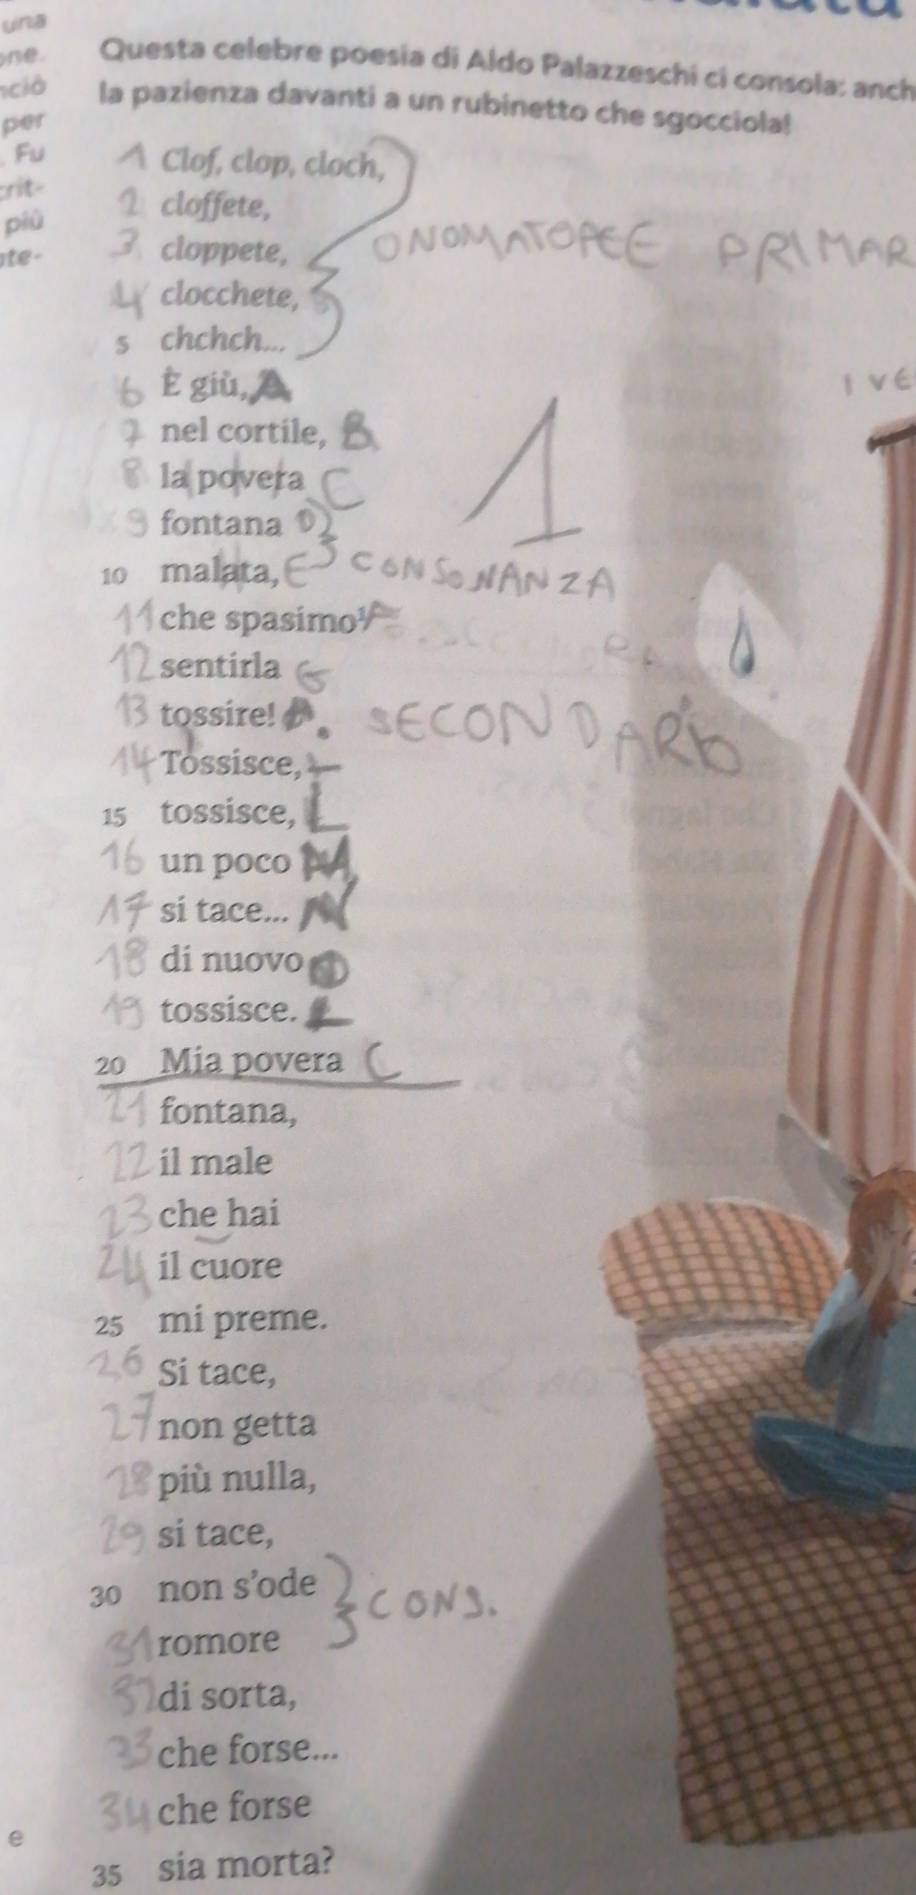 una
Questa celebre poesia di Aldo Palazzeschi ci consola: anch
la pazienza davanti a un rubinetto che sgocciola!
per
Fu
crit-
più
te-
1 Clof, clop, cloch,
2 cloffete,
3 cloppete, ONOMATOPEE PRIMAR
4 clocchete,
5 chchch...
6 È giù, A IVE
7 nel cortile, B
8 la povera C
1
9 fontana D
10 malata, E CONSONANZA
11 che spasimo¹ F
12 sentirla G
13 tossire! SECONDARIO
14 Tossisce,
15 tossisce, L
16 un poco M
17 si tace... N
18 di nuovo
19 tossisce. L
20 Mia povera C
21 fontana,
22 il male
23 che hai
24 il cuore
25 mi preme.
26 Si tace,
27 non getta
28 più nulla,
29 si tace,
30 non s'ode CONS.
31 romore
32 di sorta,
33 che forse...
34 che forse
e
35 sia morta?